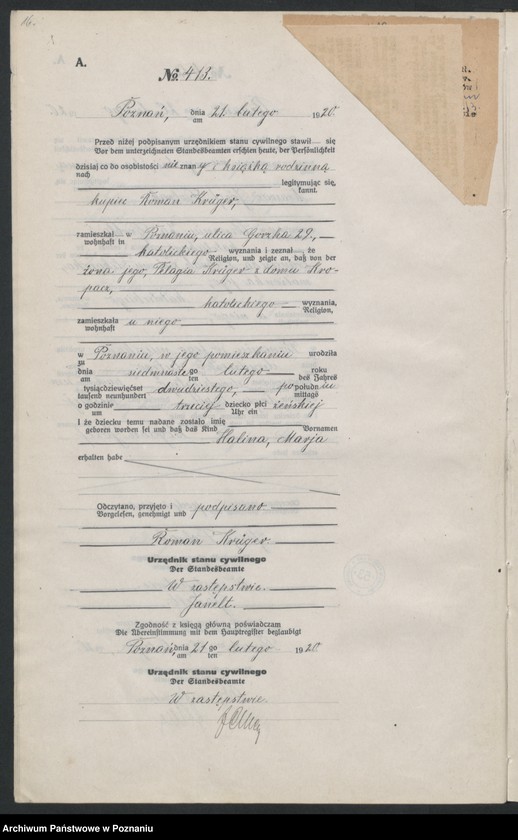 16.
A.
№ 413.
Poznań, dnia 21 lutego 1920.
am
Przed niżej podpisanym urzędnikiem stanu cywilnego stawił się
Vor dem unterzeichneten Standesbeamten erschien heute, der Persönlichkeit
dzisiaj co do osobistości nie znany i książką rodzinną
nach
legitymując się,
kannt.
kupiec Roman Krüger,
zamieszkał w Poznaniu, ulica Gorzka 29,
wohnhaft in
katolickiego wyznania i zeznał że
Religion, und zeigte an, daß von der
żona jego, Pelagia Krüger z domu Kro-
pacz,
katolickiego wyznania,
Religion,
zamieszkała u niego
wohnhaft
w Poznaniu, w jego pomieszkaniu urodziła
zu
dnia siedmnastego lutego roku
am ten des Jahres
tysiącdziewięćset dwudziestego, po południu
tausend neunhundert mittags
o godzinie trzeciej dziecko płci żeńskiej
um Uhr ein
i że dziecku temu nadane zostało imię
geboren worden sei und daß das Kind Vornamen
Halina, Marja
erhalten habe
Odczytano, przyjęto i podpisano
Vorgelesen, genehmigt und
Roman Krüger.
Urzędnik stanu cywilnego
Der Standesbeamte
W zastępstwie.
Janelt.
Zgodność z księgą główną poświadczam
Die Übereinstimmung mit dem Hauptregister beglaubigt
Poznań, dnia 21 go lutego 1920
am ten
Urzędnik stanu cywilnego
Der Standesbeamte
W zastępstwie.
Archiwum Państwowe w Poznaniu